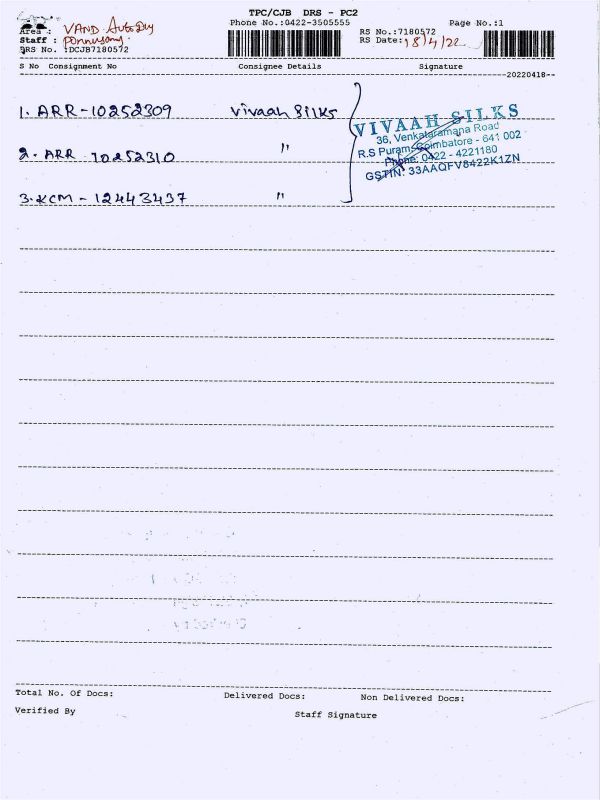 TPC/CJB DRS - PC2
Phone No.:0422-3505555 Page No.:1
Area : VAND Auto
Staff : Ponnusamy. RS No.:7180572
DRS No. :DCJB7180572 RS Date: 18/4/22
S No Consignment No Consignee Details Signature
20220418
1. ARR-10252309 Vivaah Silks
2. ARR 10252310 "
3. KCM - 12443437 "
VIVAAH SILKS
36, Venkataramana Road
R.S Puram, Coimbatore - 641 002
Phone: 0422 - 4221180
GSTIN: 33AAQFV8422K1ZN
Total No. Of Docs: Delivered Docs: Non Delivered Docs:
Verified By Staff Signature